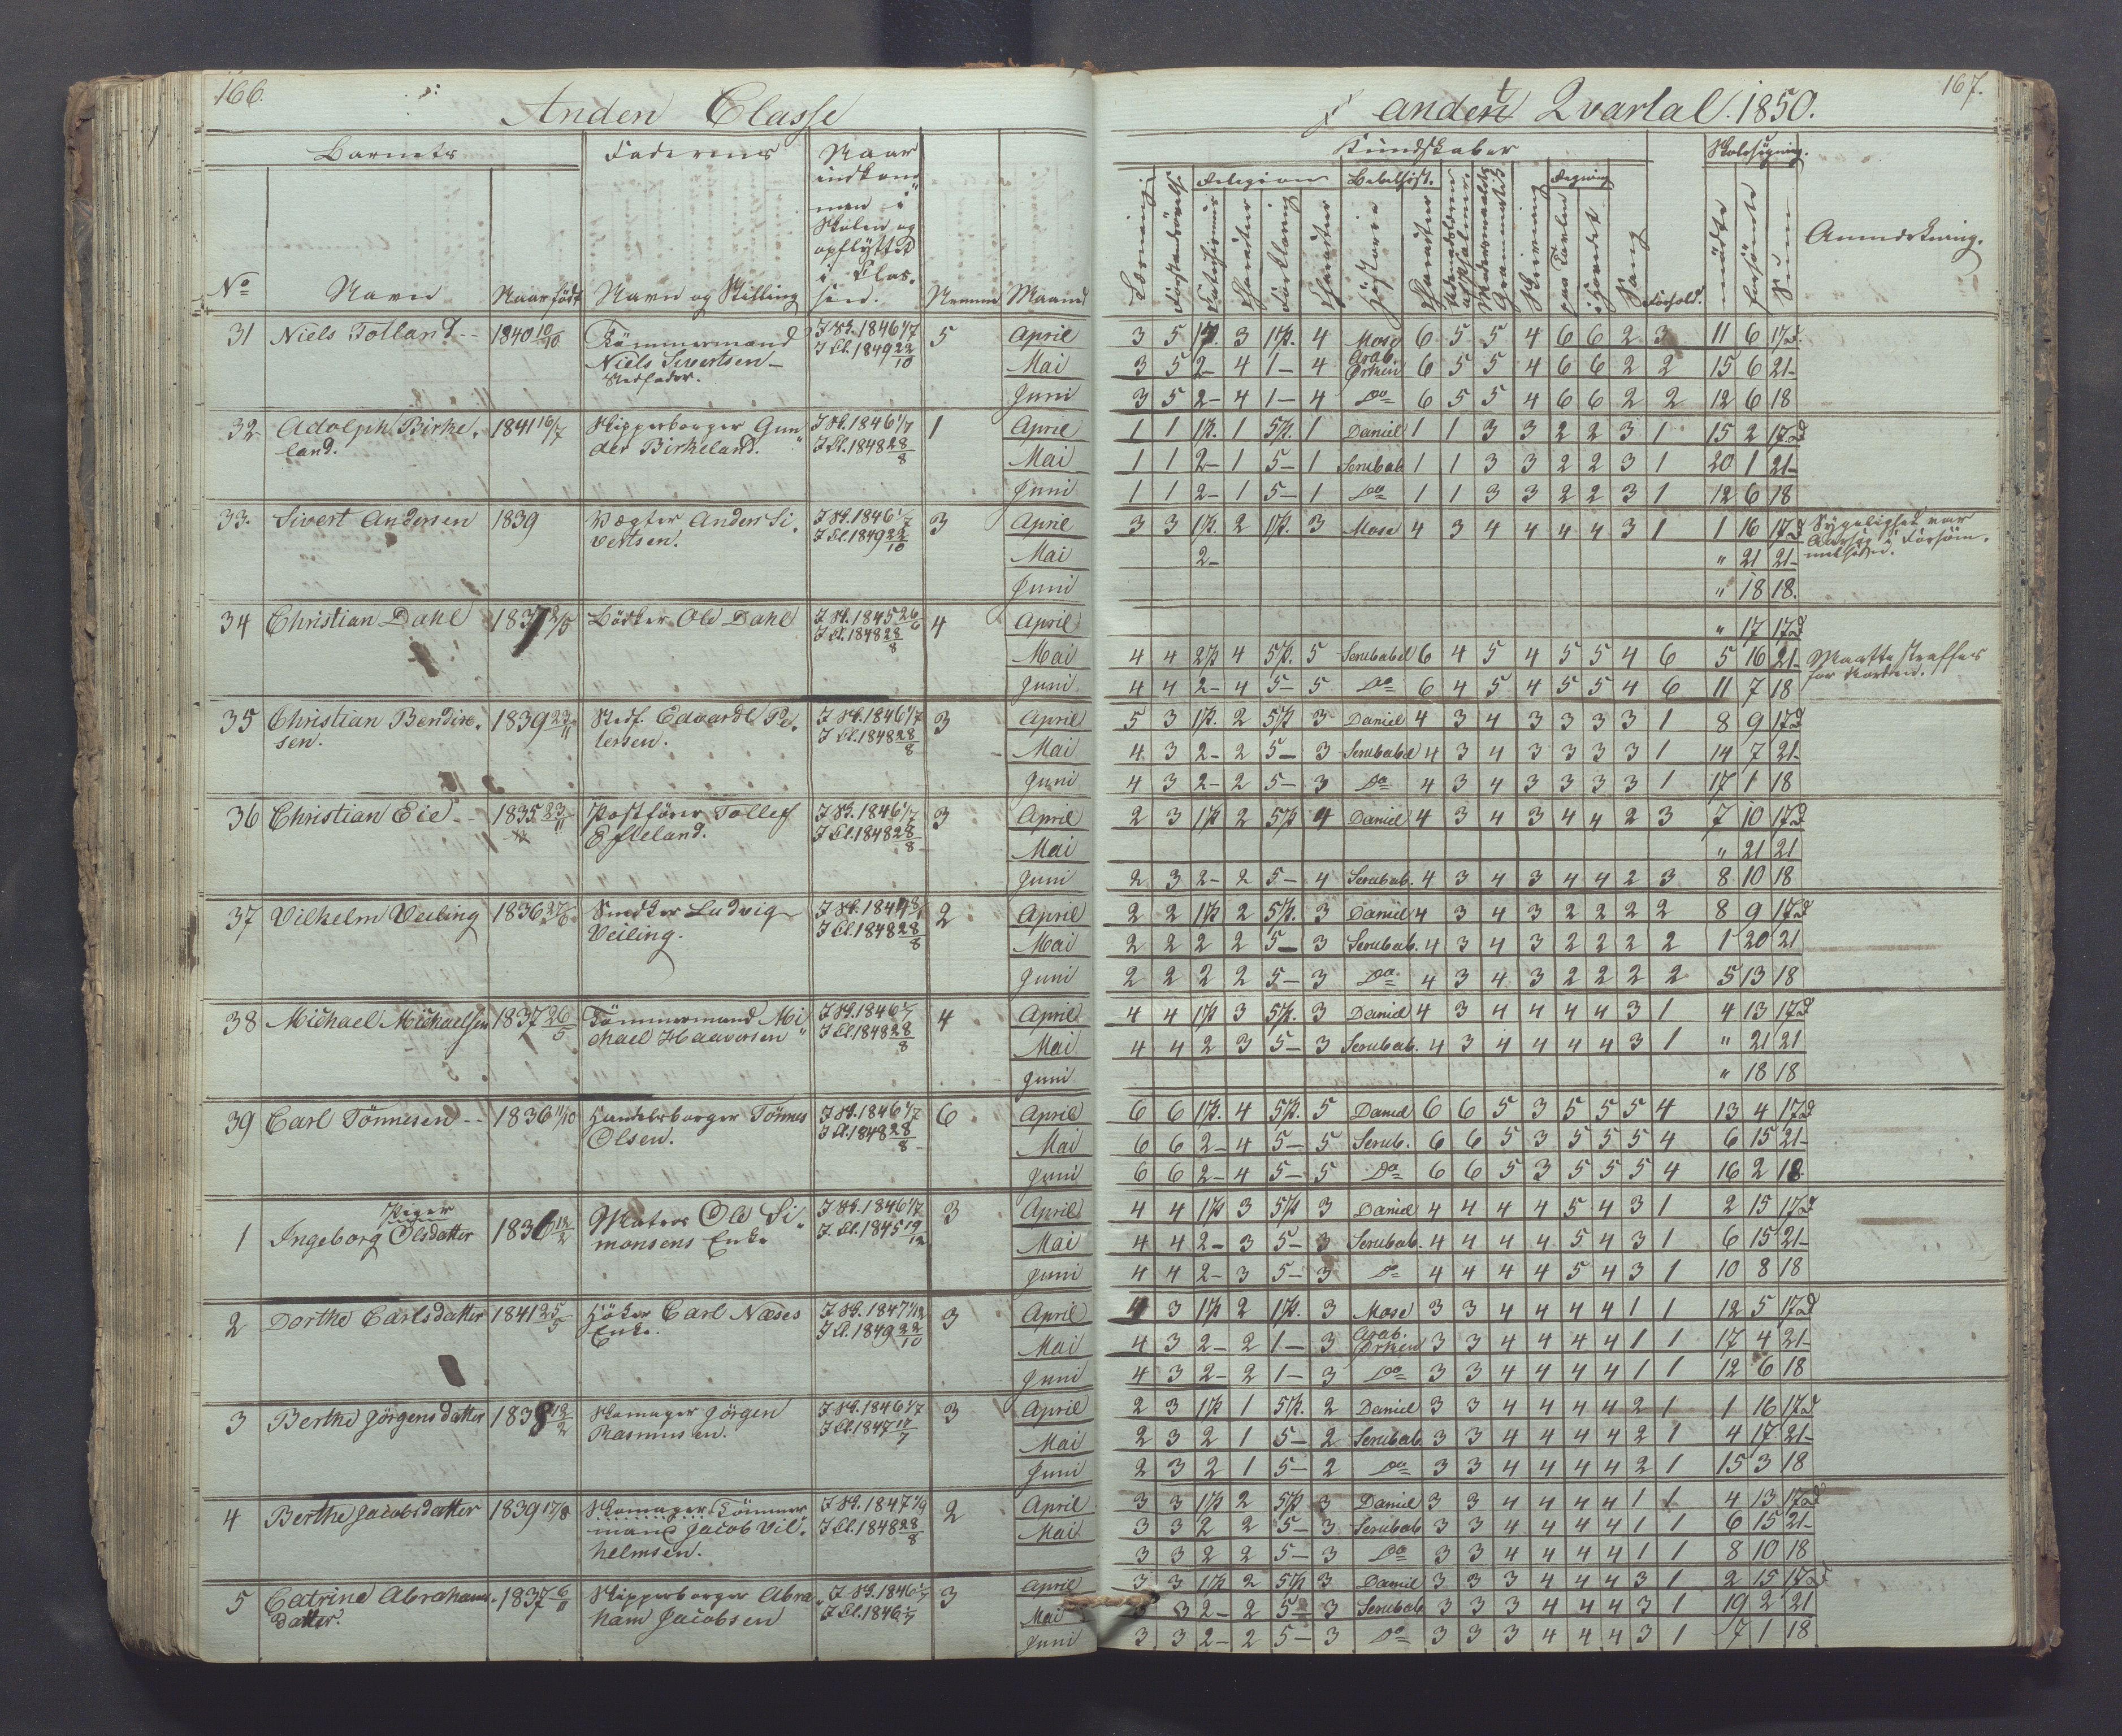 166.
Anden Classe
Barnets
Faderens
Naar
indkom
men i
Skolen og
opflyttet
i Clas-
sen.
No
Navn
Naar født
Navn og Stilling
Nemme
Maaned
31 Niels Tolland 1840 10/10 Tömmermand J Sk. 1846 1/7 5 April
Niels Sivertsen J Cl. 1849 22/10 Mai
Stedfader. Juni
32 Adolph Birke- 1841 16/7 Skipperborger Gun J Sk. 1846 1/7 1 April
land. der Birkeland. J Cl. 1848 28/8 Mai
Juni
33. Sivert Andersen 1839 Vægter Anders Si- J Sk. 1846 1/7 3 April
vertsen. J Cl. 1849 22/10 Mai
Juni
34 Christian Dahl Bödker Ole Dahl J Sk. 1845 26/6 4 April
J Cl. 1848 28/8 Mai
Juni
35 Christian Bendix- 1839 23/11 Stedf. Edvardt Pe- J Sk. 1846 1/7 3 April
sen. tersen. J Cl. 1848 28/8 Mai
Juni
36 Christian Eie 1835 23/11 Postförer Tollef J Sk. 1846 1/7 3 April
Efteland. J Cl. 1848 28/8 Mai
Juni
37 Vilhelm Veiling 1836 Snedker Ludvig J Sk. 2 April
Veiling. J Cl. 1848 28/8 Mai
Juni
38 Michael Michaelsen 1837 26/5 Tömmermand Mi J Sk. 1846 1/7 4 April
chael Haaversen J Cl. 1848 28/8 Mai
Juni
39 Carl Tönnesen 1836 11/10 Handelsborger Tönnes J Sk. 1846 1/7 6 April
Olsen. J Cl. 1848 28/8 Mai
Juni
Piger
1 Ingeborg Olsdatter 1836 18/2 Matros Ole Si- J Sk. 1846 1/7 3 April
monsens Enke J Cl. 1845 19/12 Mai
Juni
2 Dorthe Carlsdatter 1841 25/5 Höker Carl Næses J Sk. 1847 1/12 3 April
Enke. J Cl. 1849 22/10 Mai
Juni
3 Berthe Jörgensdatter 1838 12/2 Skomager Jörgen J Sk. 1846 1/7 3 April
Rasmussen. J Cl. 1847 17/7 Mai
Juni
4 Berthe Jacobsdatter 1839 17/8 Skomager Tömmer J Sk. 1847 1/9 2 April
mand Jacob Vil- J Cl. 1848 28/8 Mai
helmsen.
5 Catrine Abrahams- 1837 6/11 Skipperborger Abra J Sk. 1846 1/7 3 April
datter. ham Jacobsen J Cl. 1846 1/7 Mai
Juni
167.
andet Qvartal. 1850.
Kundskaber
Skolesøgning.
Religion
Bibelhist.
Regning
Læsning
Forstandsövelse
Catechismus
Charakter
Forklaring
Charakter
Historie
Charakter
Modersmaalets
Grammatik
Skrivning
paa Tavlen
i Hovedet
Sang
Forhold.
mödte
forsömte
Sum
Anmærkning.
3 5 1P. 3 1P. 4 Mose 6 5 5 4 6 6 2 3 11 6 17d.
3 5 2- 4 1- 4 Arab. Örken 6 5 5 4 6 6 2 2 15 6 21-
3 5 2- 4 1- 4 Do 6 5 5 4 6 6 2 2 12 6 18
1 1 1P. 1 5P. 1 Daniel 1 1 3 3 2 2 3 1 15 2 17d
1 1 2- 1 5- 1 Serubab 1 1 3 3 2 2 3 1 20 1 21-
1 1 2- 1 5- 1 Do 1 1 3 3 2 2 3 1 12 6 18
3 3 1P. 2 1P. 3 Mose 4 3 4 4 4 4 3 1 1 16 17d Sygelighed var
2- " 21 21- Aarsag i Forsöm-
" 18 18. melsen.
" 17 17d
4 4 2P 4 5P. 5 Serubabel 6 4 5 4 5 5 4 6 5 16 21- Maatte straffes
4 4 2- 4 5- 5 Do 6 4 5 4 5 5 4 6 11 7 18
5 3 1P. 2 5P 3 Daniel 4 3 4 3 3 3 3 1 8 9 17d
4 3 2- 2 5- 3 Serubabel 4 3 4 3 3 3 3 1 14 7 21-
4 3 2- 2 5- 3 Do 4 3 4 3 3 3 3 1 17 1 18
2 3 1P 2 5P 4 Daniel 4 3 4 3 4 4 2 3 7 10 17d
" 21 21
2 3 2- 2 5- 4 Serubab. 4 3 4 3 4 4 2 3 8 10 18
2 2 1P 2 5P. 3 Daniel 4 3 4 3 2 2 2 2 8 9 17d
2 2 2 2 5- 3 Serubab. 4 3 4 3 2 2 2 2 1 20 21
2 2 2 2 5- 3 Do 4 3 4 3 2 2 2 2 5 13 18
4 4 1P 3 5P. 3 Daniel 4 3 4 4 4 4 3 1 4 13 17d
4 4 2 3 5- 3 Serubab. 4 3 4 4 4 4 3 1 " 21 21
" 18 18
6 6 1P. 4 5P. 5 Daniel 6 6 5 3 5 5 5 4 13 4 17d
6 6 2- 4 5- 5 Serub. 6 6 5 3 5 5 5 4 6 15 21-
6 6 2- 4 5- 5 Do 6 6 5 3 5 5 5 4 16 2 18
4 4 1P 3 5P 3 Daniel 4 4 4 4 5 4 3 1 2 15 17d
4 4 2- 3 5- 3 Serubab. 4 4 4 4 5 4 3 1 6 15 21-
4 4 2- 3 5- 3 Do 4 4 4 4 5 4 3 1 10 8 18
4 3 1P 2 1P. 3 Mose 3 3 4 4 4 4 1 1 12 5 17d
4 3 2- 2 1- 3 Arab. Örken 3 3 4 4 4 4 1 1 17 4 21-
4 3 2- 2 1- 3 Do 3 3 4 4 4 4 1 1 12 6 18
2 3 1P 1 5P. 2 Daniel 3 3 4 4 4 4 2 1 1 16 17d
2 3 2 1 5- 2 Serubab 3 3 4 4 4 4 2 1 4 17 21-
2 3 2 1 5- 2 Do 3 3 4 4 4 4 2 1 15 3 18
3 3 1P 2 5P 3 Daniel 3 3 4 4 4 4 1 1 4 13 17d
3 3 2 2 5- 3 Serubab 3 3 4 4 4 4 1 1 6 15 21-
3 3 2 2 5- 3 Do 3 3 4 4 4 4 1 1 8 10 18
3 3 1P 2 5P 3 Daniel 3 3 3 4 4 4 3 1 2 15 17d
3 2- 2 5- 3 Serubab 3 3 3 4 4 4 3 1 19 2 21
3 3 2- 2 5- 3 Do 3 3 3 4 4 4 3 1 17 1 18